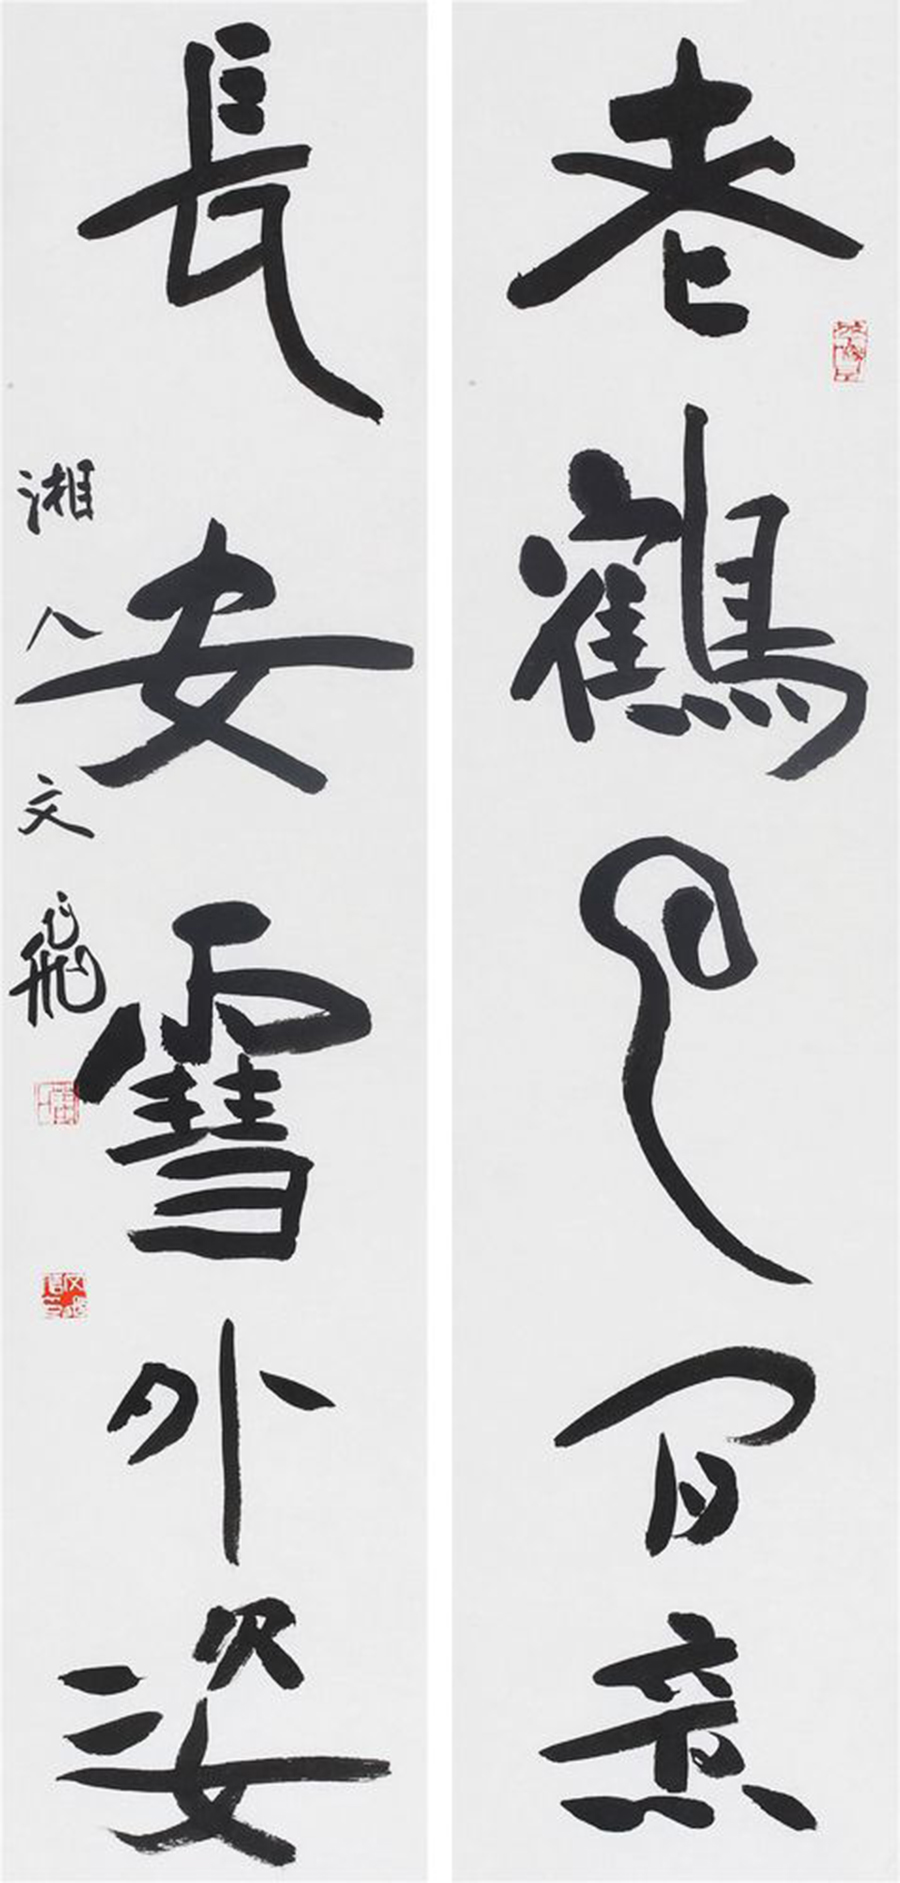 老鶴云間意
長安雪外姿
湘人文飛